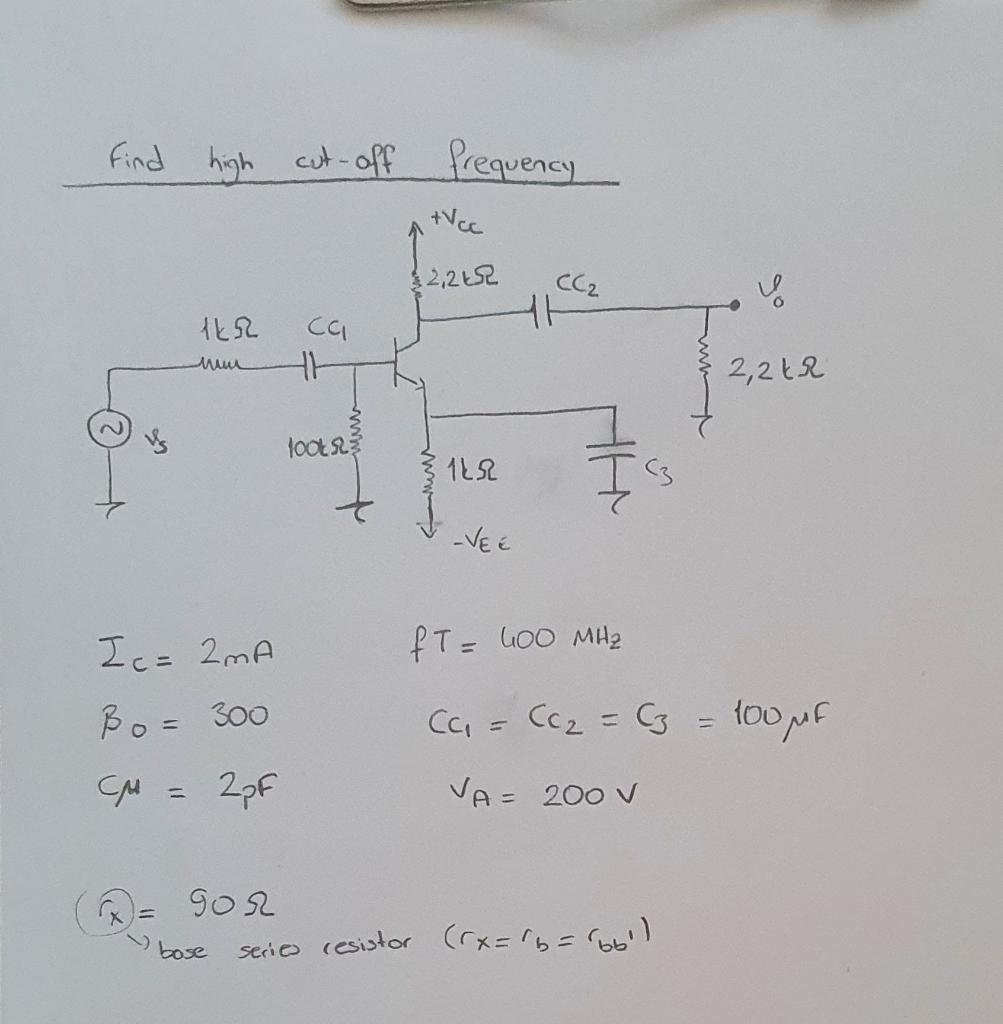 Find high cut-off frequency
+VCC
2,2kΩ
CC2
vo
1kΩ
CC1
2,2kΩ
vs
100kΩ
1kΩ
C3
-VEE
IC = 2mA
fT = 400 MHz
βo = 300
CC1 = CC2 = C3 = 100μF
Cμ = 2pF
VA = 200 V
rx = 90Ω
base series resistor (rx = rb = rbb')